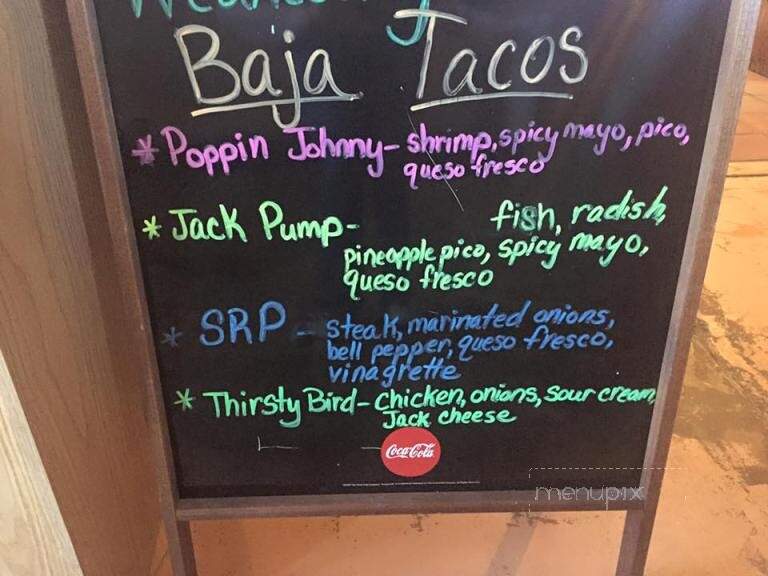 Baja Tacos
* Poppin Johnny- shrimp, spicy mayo, pico,
queso fresco
* Jack Pump- fish, radish,
pineapple pico, spicy mayo,
queso fresco
* SRP - steak, marinated onions,
bell pepper, queso fresco,
vinagrette
* Thirsty Bird- Chicken, onions, sour cream,
Jack cheese
Coca-Cola
menupix